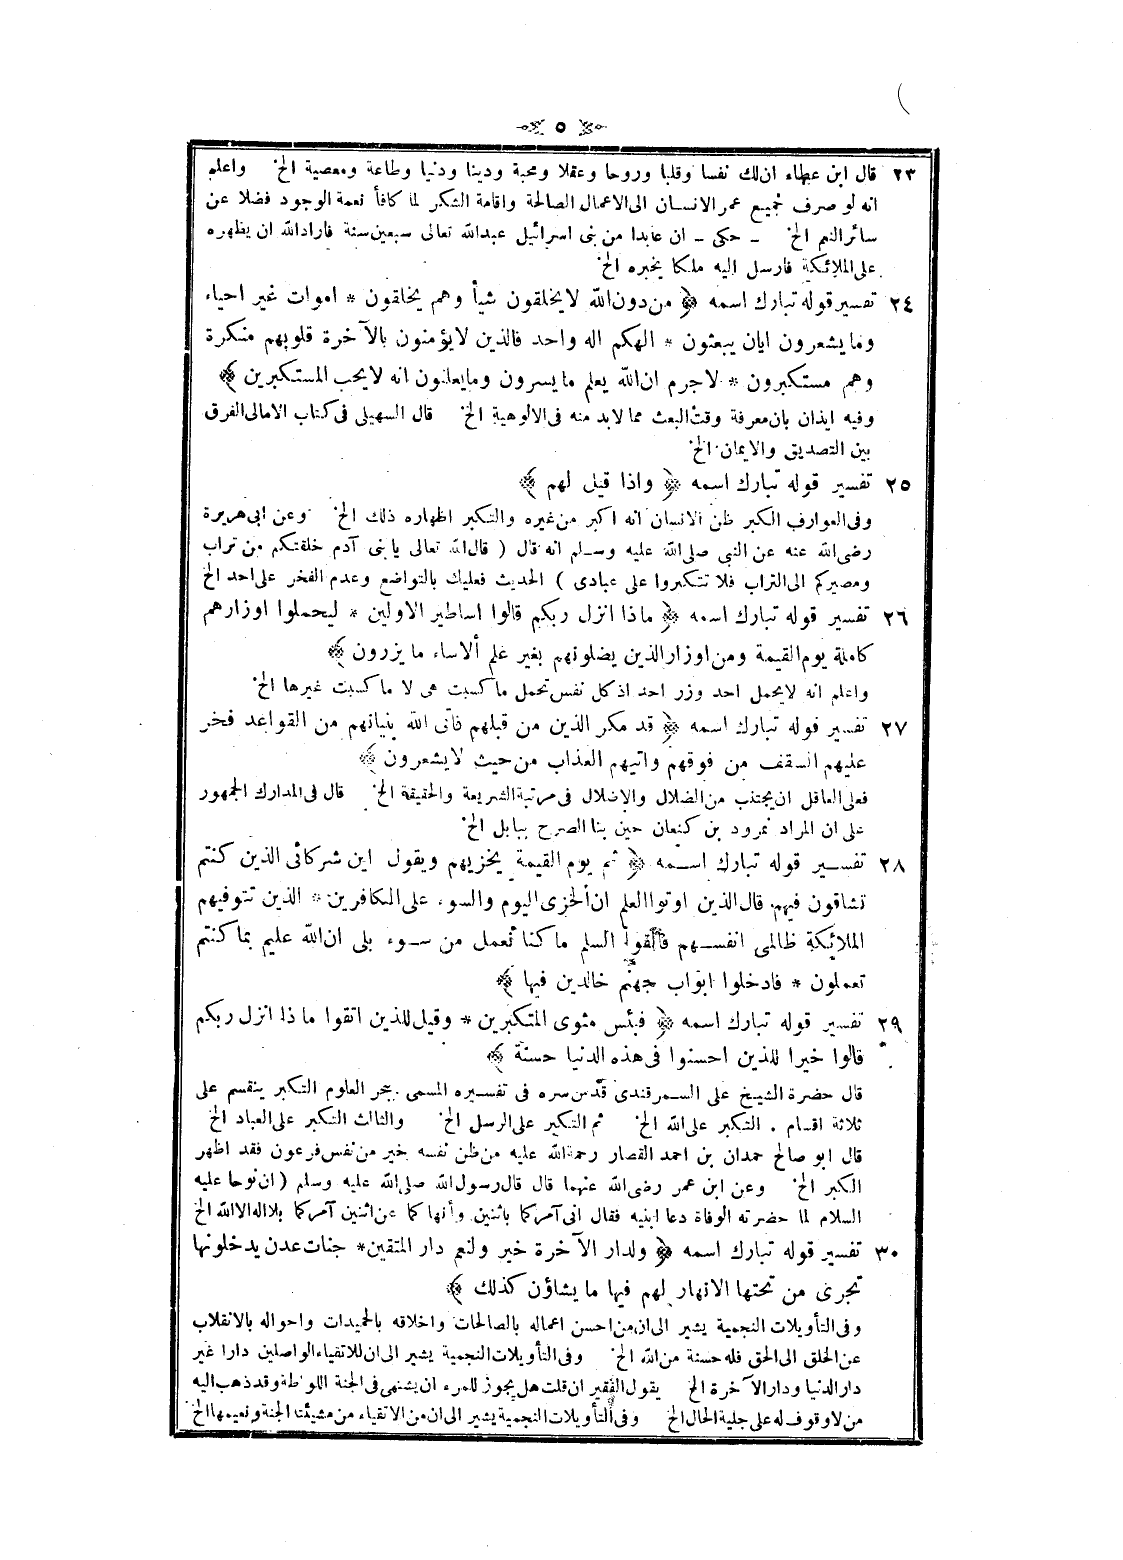 ٥
٢٣ قال ابن عطاء ان لك نفسا وقلبا وروحا وعقلا ومحبة ودينا ودنيا وطاعة ومعصية الخ واعلم
انه لو صرف جميع عمر الانسان الى الاعمال الصالحة واقامة الشكر لما كافأ نعمة الوجود فضلا عن
سائر النعم الخ – حكى – ان عابدا من بنى اسرائيل عبد الله تعالى سبعين سنة فاراد الله ان يظهره
على الملائكة فارسل اليه ملكا يخبره الخ
٢٤ تفسير قوله تبارك اسمه ﴿ من دون الله لا يخلقون شيأ وهم يخلقون * اموات غير احياء
وما يشعرون ايان يبعثون * الهكم اله واحد فالذين لا يؤمنون بالآخرة قلوبهم منكرة
وهم مستكبرون * لا جرم ان الله يعلم ما يسرون وما يعلنون انه لا يحب المستكبرين ﴾
وفيه ايذان بان معرفة وقت البعث مما لابد منه فى الالوهية الخ قال السهيلى فى كتاب الامالى الفرق
بين التصديق والايمان الخ
٢٥ تفسير قوله تبارك اسمه ﴿ واذا قيل لهم ﴾
وفى العوارف الكبر ظن الانسان انه اكبر من غيره والتكبر اظهاره ذلك الخ وعن ابى هريرة
رضى الله عنه عن النبى صلى الله عليه وسلم انه قال ( قال الله تعالى يا بنى آدم خلقتكم من تراب
ومصيركم الى التراب فلا تتكبروا على عبادى ) الحديث فعليك بالتواضع وعدم الفخر على احد الخ
٢٦ تفسير قوله تبارك اسمه ﴿ ماذا انزل ربكم قالوا اساطير الاولين * ليحملوا اوزارهم
كاملة يوم القيمة ومن اوزار الذين يضلونهم بغير علم ألا ساء ما يزرون ﴾
واعلم انه لا يحمل احد وزر احد اذ كل نفس تحمل ما كسبت هى لا ما كسبت غيرها الخ
٢٧ تفسير قوله تبارك اسمه ﴿ قد مكر الذين من قبلهم فأتى الله بنيانهم من القواعد فخر
عليهم السقف من فوقهم واتيهم العذاب من حيث لا يشعرون ﴾
فعلى العاقل ان يجتنب من الضلال والاضلال فى مرتبة الشريعة والحقيقة الخ قال فى المدارك الجمهور
على ان المراد نمرود بن كنعان حين بنا الصرح ببابل الخ
٢٨ تفسير قوله تبارك اسمه ﴿ ثم يوم القيمة يخزيهم ويقول اين شركائى الذين كنتم
تشاقون فيهم قال الذين اوتوا العلم ان الخزى اليوم والسوء على الكافرين * الذين تتوفيهم
الملائكة ظالمى انفسهم فألقوا السلم ما كنا نعمل من سوء بلى ان الله عليم بما كنتم
تعملون * فادخلوا ابواب جهنم خالدين فيها ﴾
٢٩ تفسير قوله تبارك اسمه ﴿ فبئس مثوى المتكبرين * وقيل للذين اتقوا ما ذا انزل ربكم
قالوا خيرا للذين احسنوا فى هذه الدنيا حسنة ﴾
قال حضرة الشيخ على السمرقندى قدس سره فى تفسيره المسمى ببحر العلوم التكبر ينقسم على
ثلاثة اقسام . التكبر على الله الخ ثم التكبر على الرسل الخ والثالث التكبر على العباد الخ
قال ابو صالح حمدان بن احمد القصار رحمة الله عليه من ظن نفسه خير من نفس فرعون فقد اظهر
الكبر الخ وعن ابن عمر رضى الله عنهما قال قال رسول الله صلى الله عليه وسلم ( ان نوحا عليه
السلام لما حضرته الوفاة دعا ابنيه فقال انى آمركما باثنين وأنهاكما عن اثنين آمركما بلا اله الا الله الخ
٣٠ تفسير قوله تبارك اسمه ﴿ ولدار الآخرة خير ولنعم دار المتقين * جنات عدن يدخلونها
تجرى من تحتها الانهار لهم فيها ما يشاؤن كذلك ﴾
وفى التأويلات النجمية يشير الى ان من احسن اعماله بالصالحات واخلاقه بالحميدات واحواله بالانقلاب
عن الخلق الى الحق فله حسنة من الله الخ وفى التأويلات النجمية يشير الى ان للاتقياء الواصلين دارا غير
دار الدنيا ودار الآخرة الخ يقول الفقير ان قلت هل يجوز للمرء ان يشتهى فى الجنة اللواطة وقد ذهب اليه
من لا وقوف له على جلية الحال الخ وفى التأويلات النجمية يشير الى ان من الاتقياء من مشيئتنا الجنة ونعيمها الخ